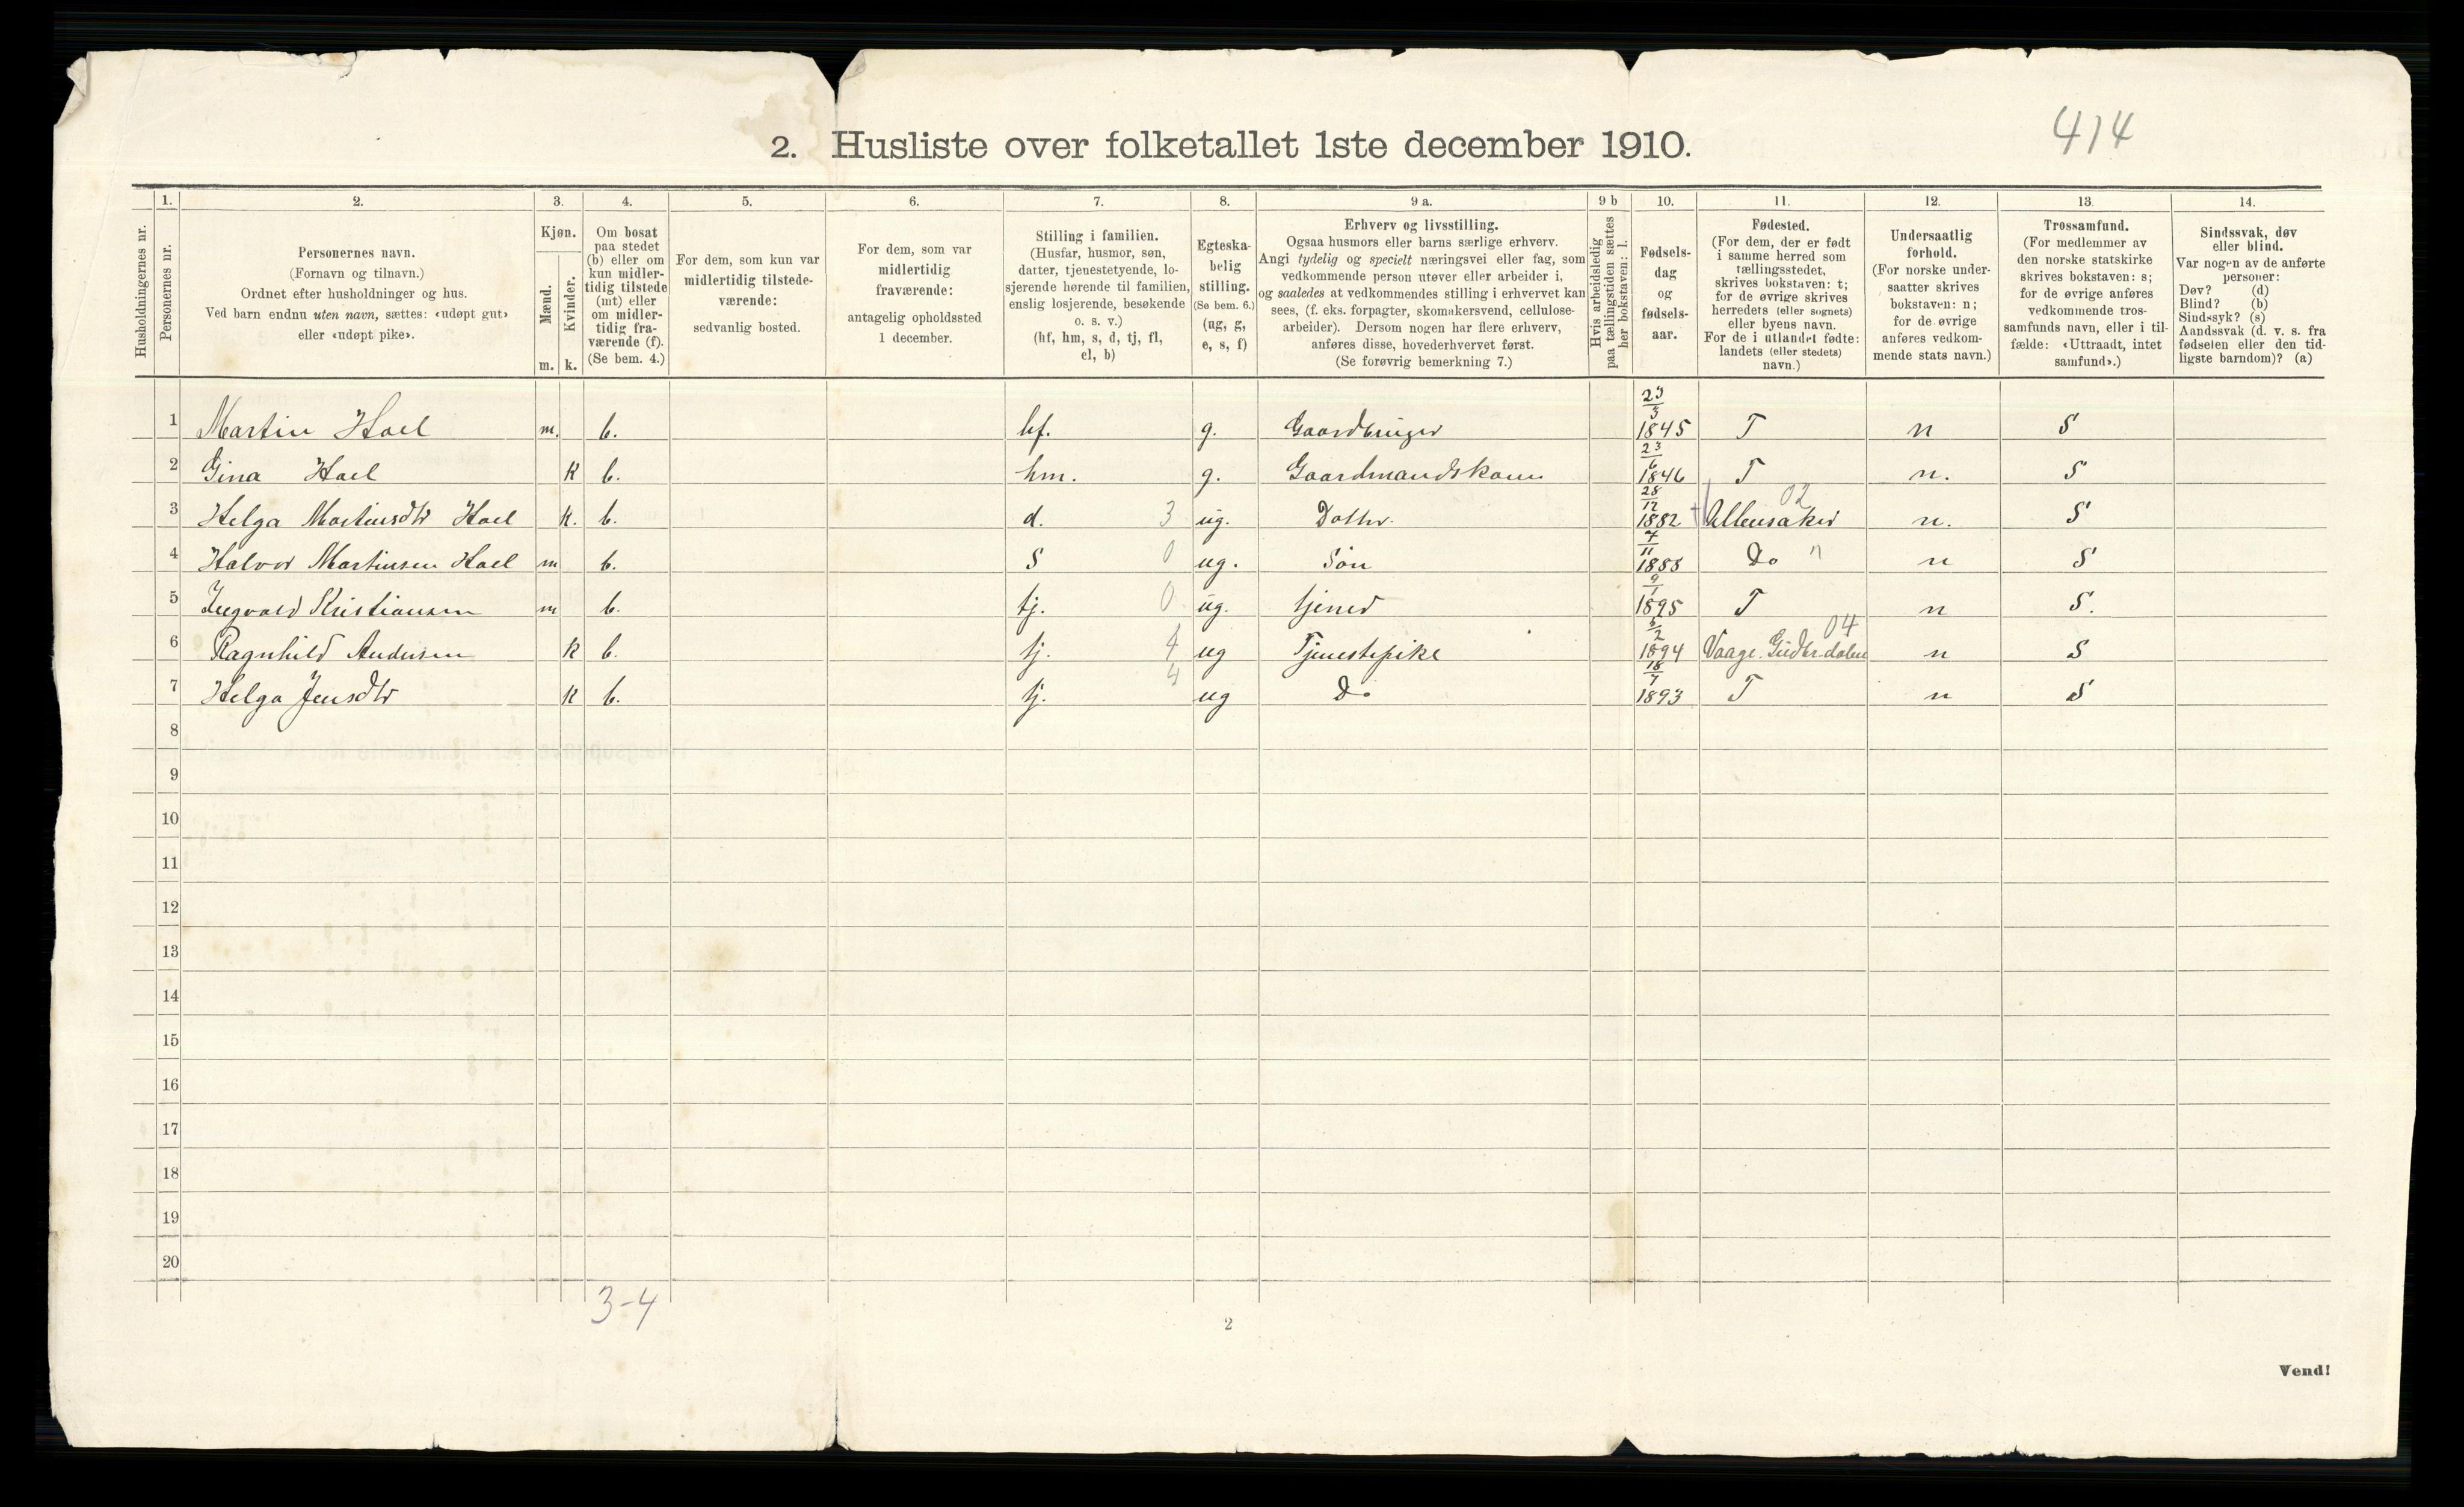 414
2. Husliste over folketallet 1ste december 1910.
Husholdningernes nr.
1.
Personernes nr.
2.
Personernes navn.
(Fornavn og tilnavn.)
Ordnet efter husholdninger og hus.
Ved barn endnu uten navn, sættes: «udøpt gut»
eller «udøpt pike».
3.
Kjøn.
Mænd.
Kvinder.
m. k.
4.
Om bosat
paa stedet
(b) eller om
kun midler-
tidig tilstede
(mt) eller
om midler-
tidig fra-
værende (f).
(Se bem. 4.)
5.
For dem, som kun var
midlertidig tilstede-
værende:
sedvanlig bosted.
6.
For dem, som var
midlertidig
fraværende:
antagelig opholdssted
1 december.
7.
Stilling i familien.
(Husfar, husmor, søn,
datter, tjenestetyende, lo-
sjerende hørende til familien,
enslig losjerende, besøkende
o. s. v.)
(hf, hm, s, d, tj, fl,
el, b)
8.
Egteska-
belig
stilling.
(Se bem. 6.)
(ug, g,
e, s, f)
9 a.
Erhverv og livsstilling.
Ogsaa husmors eller barns særlige erhverv.
Angi tydelig og specielt næringsvei eller fag, som
vedkommende person utøver eller arbeider i,
og saaledes at vedkommendes stilling i erhvervet kan
sees, (f. eks. forpagter, skomakersvend, cellulose-
arbeider). Dersom nogen har flere erhverv,
anføres disse, hovederhvervet først.
(Se forøvrig bemerkning 7.)
9 b
Hvis arbeidsledig
paa tællingstiden sættes
her bokstaven: l.
10.
Fødsels-
dag
og
fødsels-
aar.
11.
Fødested.
(For dem, der er født
i samme herred som
tællingsstedet,
skrives bokstaven: t;
for de øvrige skrives
herredets (eller sognets)
eller byens navn.
For de i utlandet fødte:
landets (eller stedets)
navn.)
12.
Undersaatlig
forhold.
(For norske under-
saatter skrives
bokstaven: n;
for de øvrige
anføres vedkom-
mende stats navn.)
13.
Trossamfund.
(For medlemmer av
den norske statskirke
skrives bokstaven: s;
for de øvrige anføres
vedkommende tros-
samfunds navn, eller i til-
fælde: «Uttraadt, intet
samfund».)
14.
Sindssvak, døv
eller blind.
Var nogen av de anførte
personer:
Døv? (d)
Blind? (b)
Sindssyk? (s)
Aandssvak (d. v. s. fra
fødselen eller den tid-
ligste barndom)? (a)
1 Martin Hoel m. b. hf. g. Gaardbruger 23/3 1845 T n S
2 Gina Hoel k b. hm. g. Gaardmandskone 23/6 1846 T n. S
3 Helga Martinsdtr Hoel k. b. d. 3 ug. Datter. 28/12 1882 Ullensaker 02 n. S
4 Halvor Martinsen Hoel m b. S 0 ug. Søn 7/11 1888 Do " n S
5 Ingvald Kristiansen m b. tj. 0 ug. tjener 9/1 1895 T n S.
6 Ragnhild Andersen k b. tj. 4 ug Tjenestepike 5/2 1894 Vaage. Gudbr.dalen 04 n S
7 Helga Jensdtr k b. tj. 4 ug Do 18/7 1893 T n S
8
9
10
11
12
13
14
15
16
17
18
19
20
3-4
2
Vend!